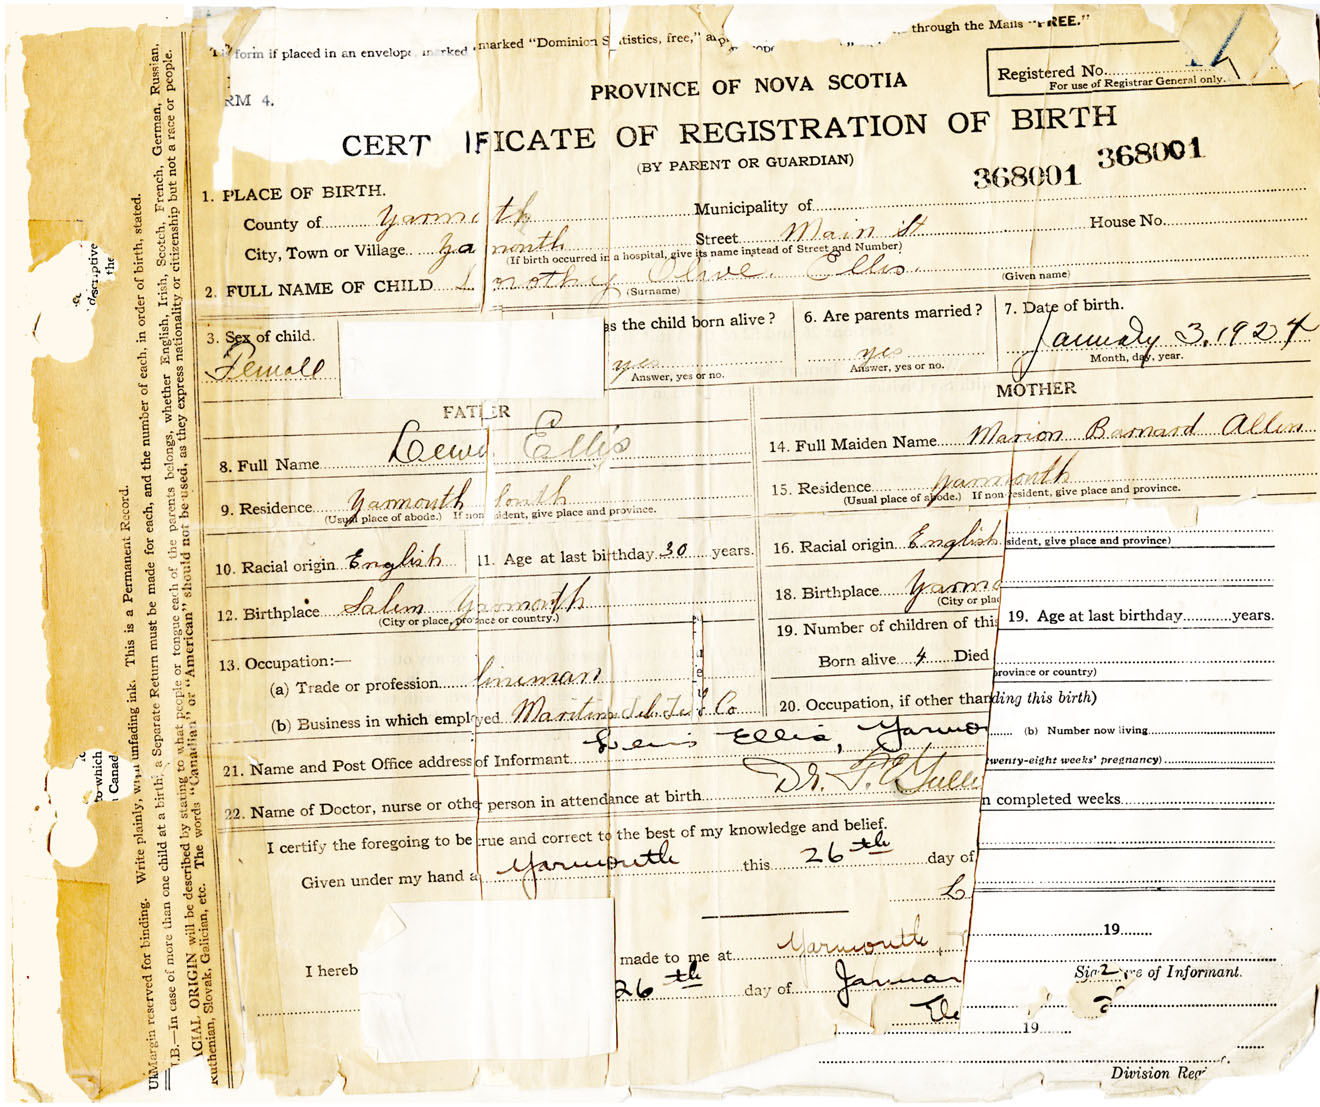 form if placed in an envelope, marked marked "Dominion Statistics, free," through the Mails "FREE."
RM 4.
PROVINCE OF NOVA SCOTIA
Registered No.
For use of Registrar General only.
CERT IFICATE OF REGISTRATION OF BIRTH
(BY PARENT OR GUARDIAN)
368001 368001
1. PLACE OF BIRTH.
County of Yarmo th Municipality of
City, Town or Village Ya mouth Street Main St House No.
(If birth occurred in a hospital, give its name instead of Street and Number)
2. FULL NAME OF CHILD orothy Olive Ellis
(Surname) (Given name)
3. Sex of child. Female
as the child born alive? yes
Answer, yes or no.
6. Are parents married? yes
Answer, yes or no.
7. Date of birth. January 3, 1924
Month, day, year.
FATHER
8. Full Name Lewi Ellis
9. Residence Yarmouth South
(Usual place of abode.) If non sident, give place and province.
10. Racial origin English 11. Age at last birthday 30 years.
12. Birthplace Salem Yarmouth
(City or place, province or country.)
13. Occupation:—
(a) Trade or profession lineman
(b) Business in which employed Maritime Tel. Tel Co
MOTHER
14. Full Maiden Name Marion Barnard Allen
15. Residence Yarmouth
(Usual place of abode.) If non-resident, give place and province.
16. Racial origin English
18. Birthplace Yarmo
(City or plac
19. Number of children of this
Born alive 4 Died
20. Occupation, if other than
sident, give place and province)
19. Age at last birthday years.
province or country)
ding this birth)
(b) Number now living
twenty-eight weeks' pregnancy)
n completed weeks
21. Name and Post Office address of Informant Lewis Ellis, Yarmo
22. Name of Doctor, nurse or other person in attendance at birth Dr.
I certify the foregoing to be true and correct to the best of my knowledge and belief.
Given under my hand a Yarmouth this 26th day of
L
I hereb made to me at Yarmouth
26th day of Januar
19
Signature of Informant.
19
Division Reg
Margin reserved for binding. Write plainly, with unfading ink. This is a Permanent Record.
N.B.—In case of more than one child at a birth, a Separate Return must be made for each, and the number of each, in order of birth, stated.
CIAL ORIGIN will be described by stating to what people or tongue each of the parents belongs, whether English, Irish, Scotch, French, German, Russian,
Ruthenian, Slovak, Galician, etc. The words "Canadian" or "American" should not be used, as they express nationality or citizenship but not a race or people.
descriptive
the
to which
Canad